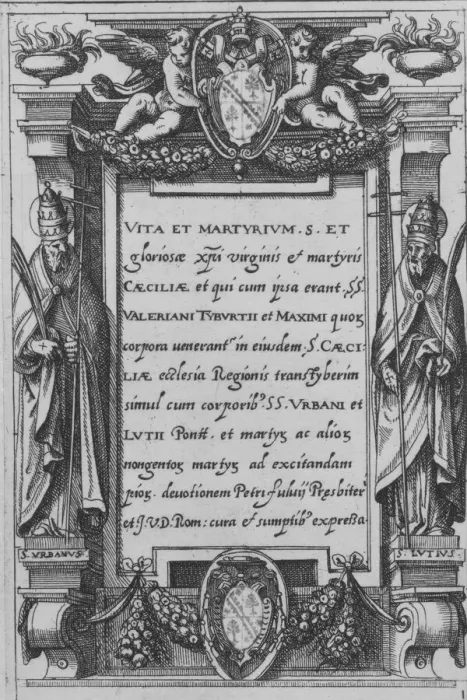 VITA ET MARTYRIVM. S. ET
gloriosæ xp̄i virginis & martyris
CÆCILIÆ et qui cum ipsa erant. SS.
VALERIANI TYBVRTII et MAXIMI quoꝝ
corpora venerant᷑ in eiusdem. S. CÆCI-
LIÆ ecclesia Regionis transtyberim
simul cum corporib⁹. SS. VRBANI et
LVTII Pont. et martyꝝ ac alioꝝ
nongentoꝝ martyꝝ ad excitandam
pioꝝ. devotionem Petri fuluij Pręsbiteri
et J.V.D. Rom: cura & sumptib⁹ expressa.
S. VRBANVS
S. LVTIVS.